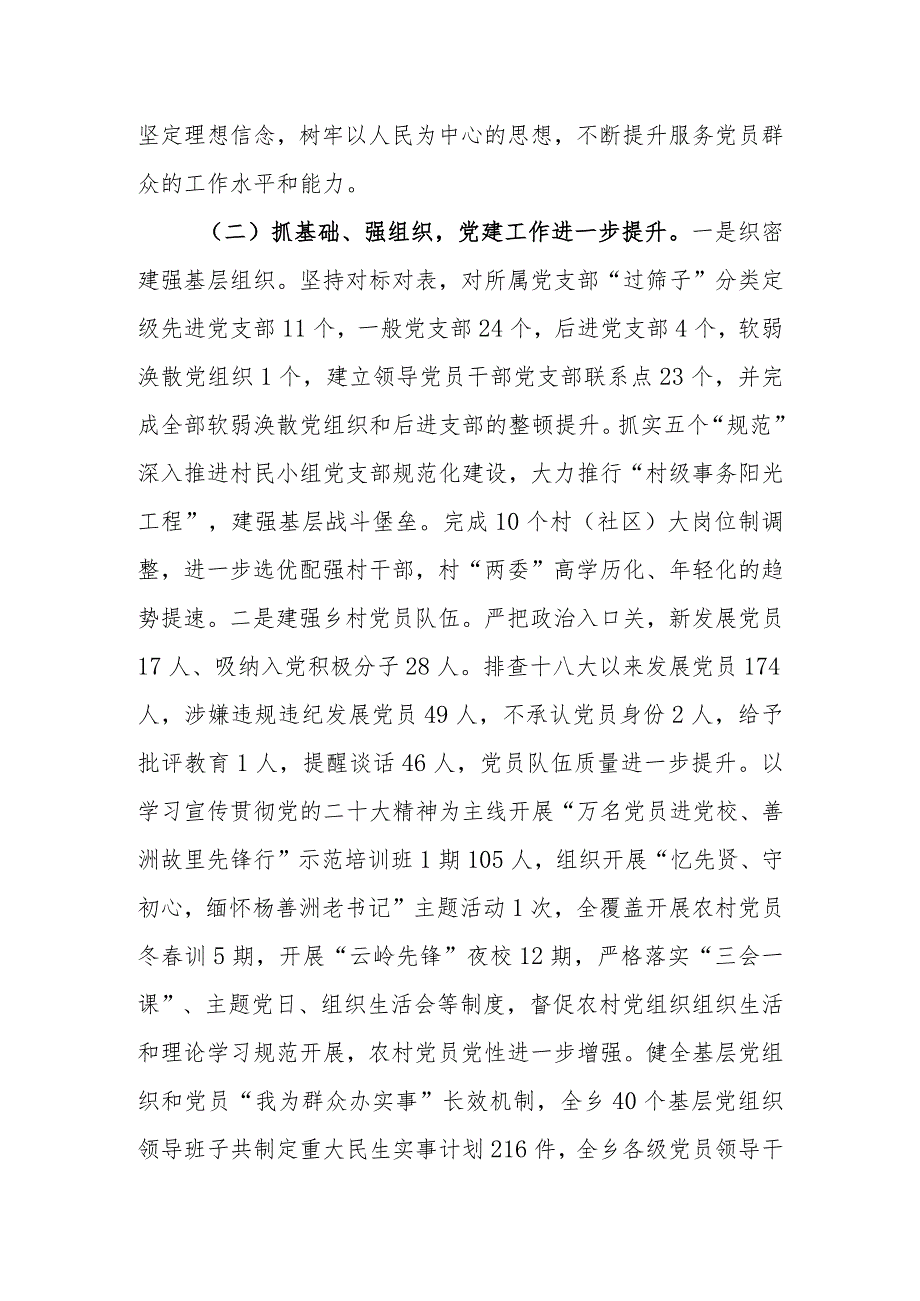 坚定理想信念，树牢以人民为中心的思想，不断提升服务党员群
众的工作水平和能力。
（二）抓基础、强组织，党建工作进一步提升。一是织密
建强基层组织。坚持对标对表，对所属党支部“过筛子”分类定
级先进党支部 11 个，一般党支部 24 个，后进党支部 4 个，软弱
涣散党组织 1 个，建立领导党员干部党支部联系点 23 个，并完
成全部软弱涣散党组织和后进支部的整顿提升。抓实五个“规范”
深入推进村民小组党支部规范化建设，大力推行“村级事务阳光
工程”，建强基层战斗堡垒。完成 10 个村（社区）大岗位制调
整，进一步选优配强村干部，村“两委”高学历化、年轻化的趋
势提速。二是建强乡村党员队伍。严把政治入口关，新发展党员
17 人、吸纳入党积极分子 28 人。排查十八大以来发展党员 174
人，涉嫌违规违纪发展党员 49 人，不承认党员身份 2 人，给予
批评教育 1 人，提醒谈话 46 人，党员队伍质量进一步提升。以
学习宣传贯彻党的二十大精神为主线开展“万名党员进党校、善
洲故里先锋行”示范培训班 1 期 105 人，组织开展“忆先贤、守
初心，缅怀杨善洲老书记”主题活动 1 次，全覆盖开展农村党员
冬春训 5 期，开展“云岭先锋”夜校 12 期，严格落实“三会一
课”、主题党日、组织生活会等制度，督促农村党组织组织生活
和理论学习规范开展，农村党员党性进一步增强。健全基层党组
织和党员“我为群众办实事”长效机制，全乡 40 个基层党组织
领导班子共制定重大民生实事计划 216 件，全乡各级党员领导干